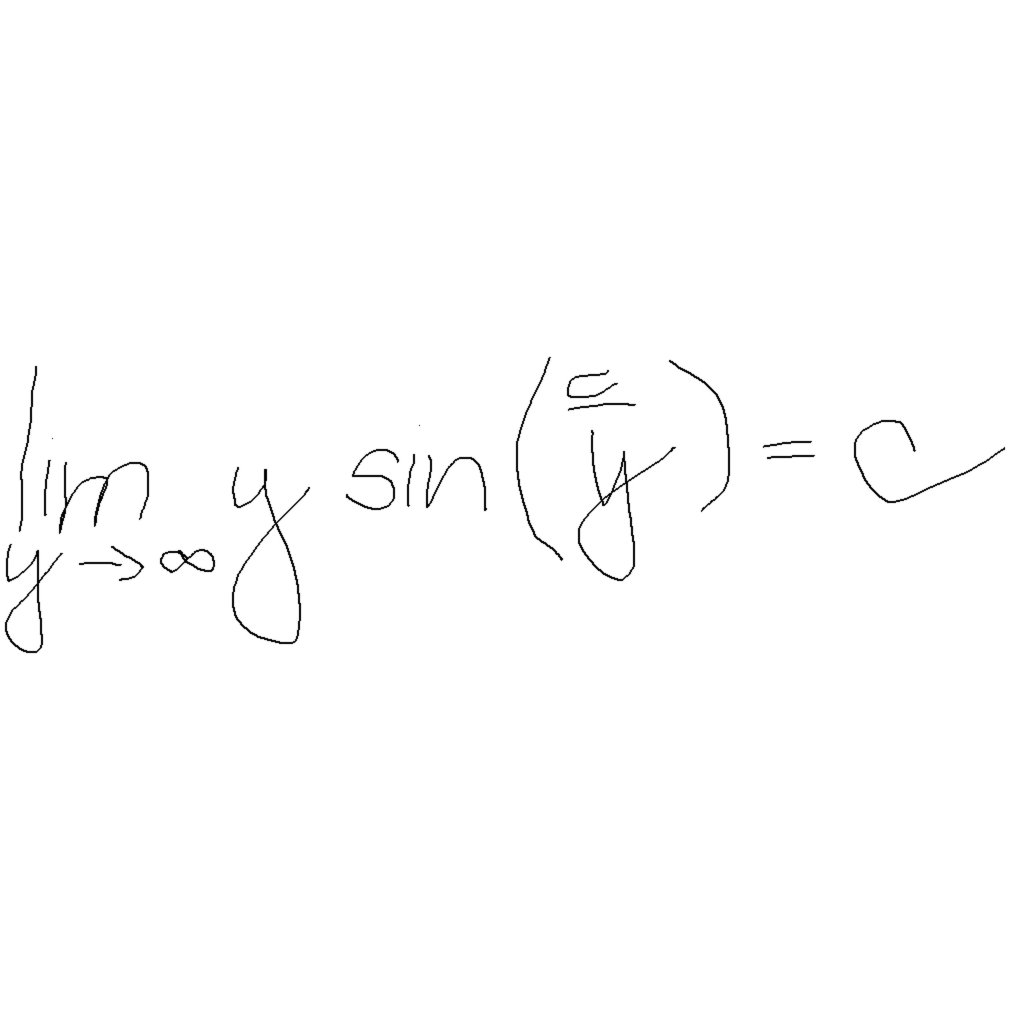 lim y→∞ y sin(c/y) = c